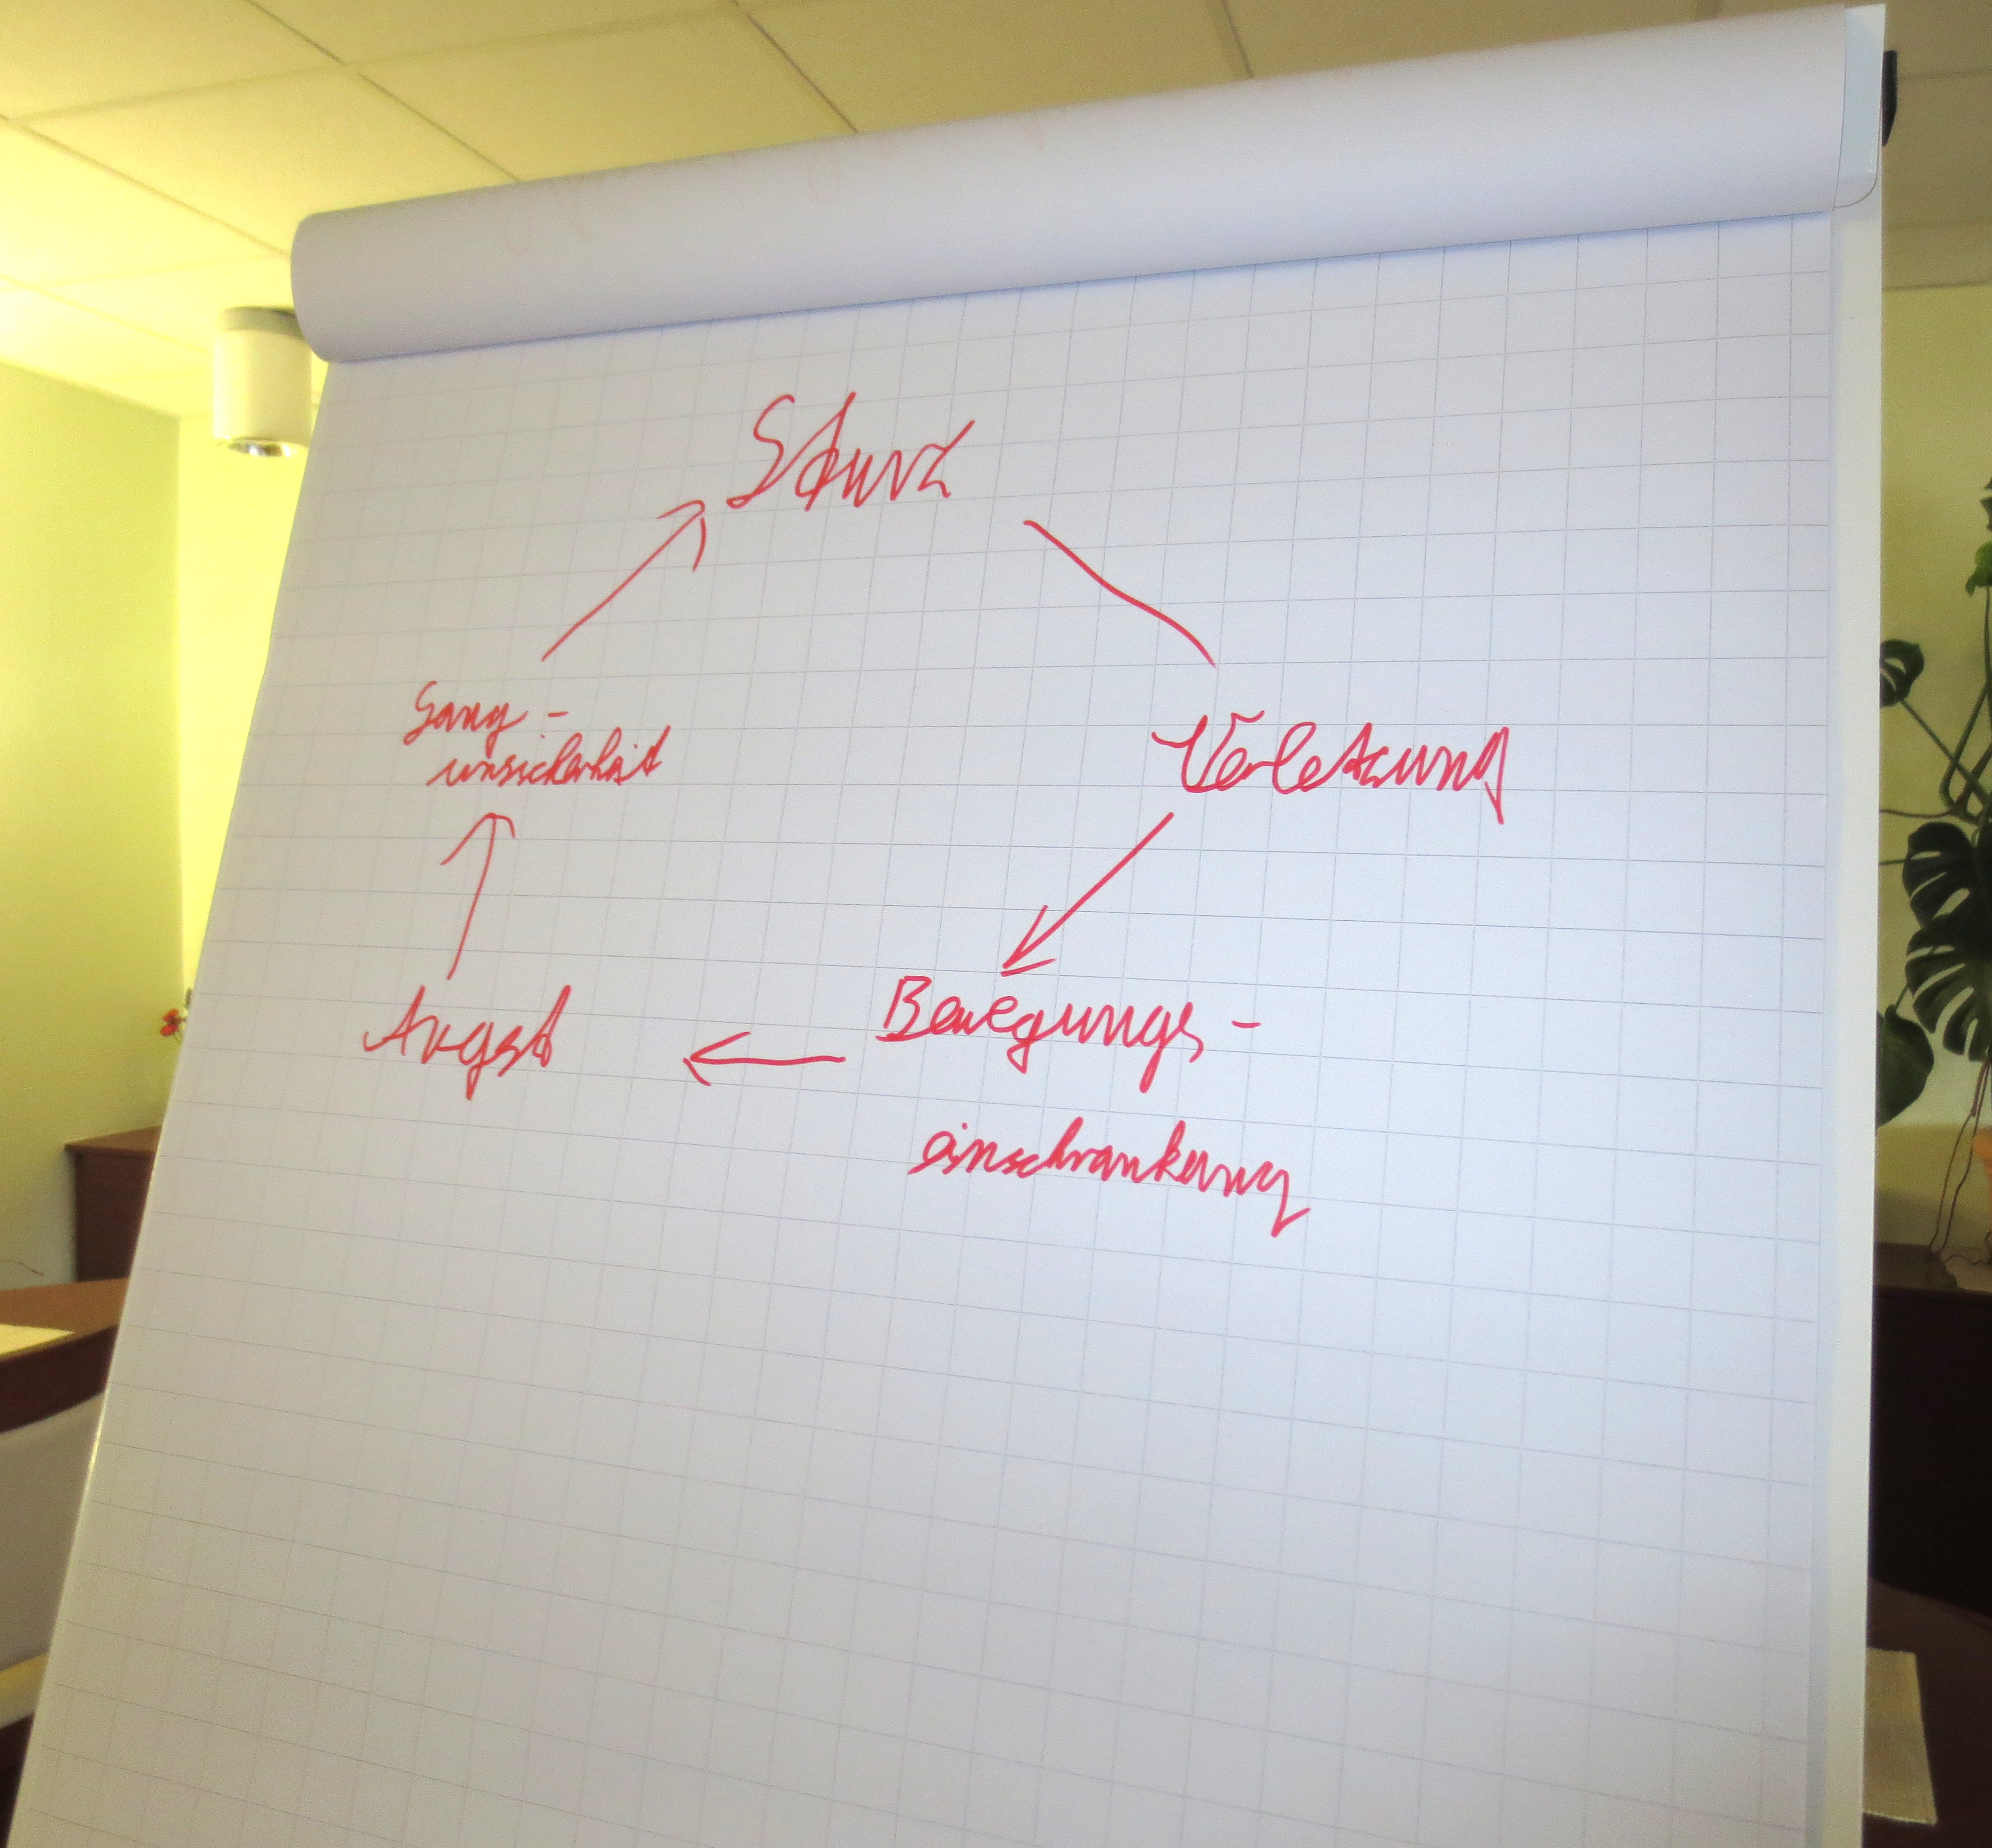 Sturz
Gang-
unsicherheit
Verletzung
Angst
Bewegungs-
einschränkung